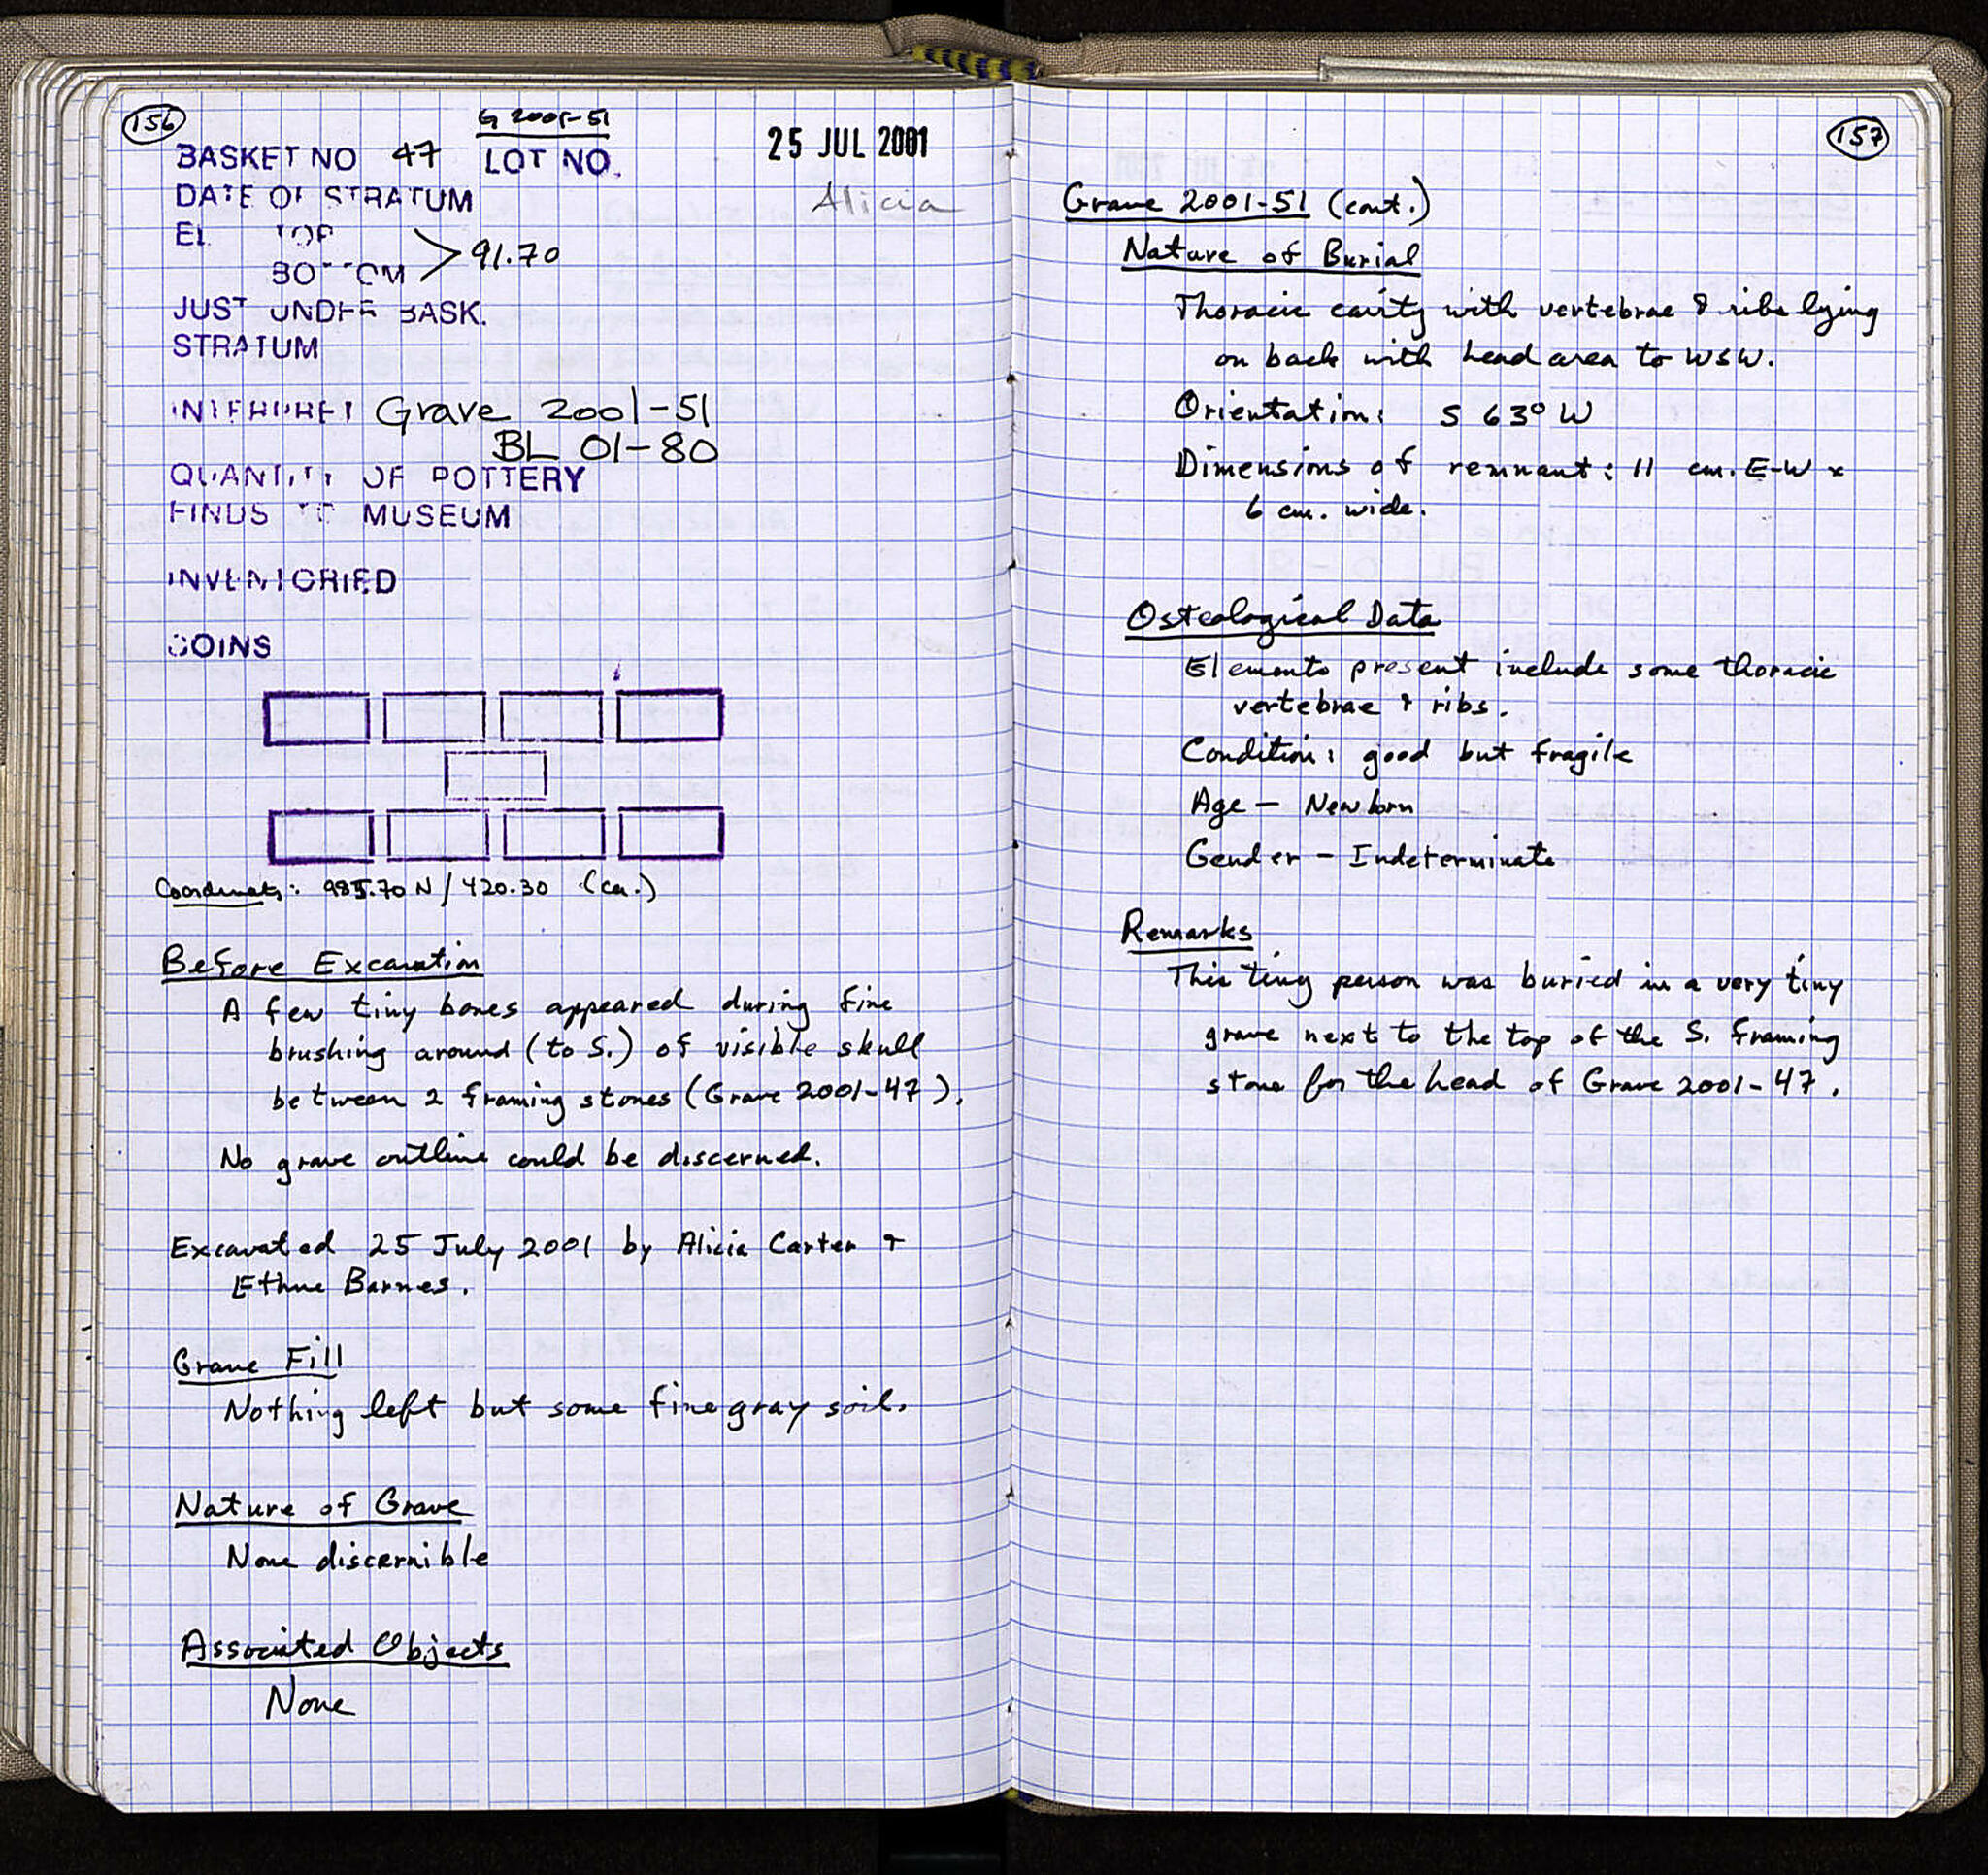 156
G 2001-51
BASKET NO 47 LOT NO.
25 JUL 2001
DATE OF STRATUM
Alicia
EL TOP
BOTTOM > 91.70
JUST UNDER BASK.
STRATUM
INTERPRET Grave 2001-51
BL 01-80
QUANTITY OF POTTERY
FINDS TO MUSEUM
INVENTORIED
COINS
Coordinates: 985.70 N / 420.30 (ca.)
Before Excavation
A few tiny bones appeared during fine
brushing around (to S.) of visible skull
between 2 framing stones (Grave 2001-47).
No grave outline could be discerned.
Excavated 25 July 2001 by Alicia Carter &
Ethne Barnes.
Grave Fill
Nothing left but some fine gray soil.
Nature of Grave
None discernible
Associated Objects
None
157
Grave 2001-51 (cont.)
Nature of Burial
Thoracic cavity with vertebrae & ribs lying
on back with head area to WSW.
Orientation: S 63° W
Dimensions of remnant: 11 cm. E-W x
6 cm. wide.
Osteological Data
Elements present include some thoracic
vertebrae & ribs.
Condition: good but fragile
Age – Newborn
Gender – Indeterminate
Remarks
This tiny person was buried in a very tiny
grave next to the top of the S. framing
stone for the head of Grave 2001-47.